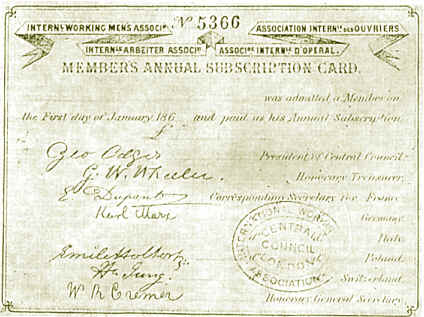 Nº 5366
INTERNL WORKING MEN'S ASSOCIN
ASSOCIATION INTERNLE DES OUVRIERS
INTERNLE ARBEITER ASSOCIN
ASSOCNE INTERNLE D'OPERAI
MEMBER'S ANNUAL SUBSCRIPTION CARD.
was admitted a Member on
the First day of January 186 and paid as his Annual Subscription
£
Geo Odger President of Central Council
G. W. Wheeler Honorary Treasurer
E. Dupont Corresponding Secretary for France
Karl Marx Germany
Italy
Poland
Jung Switzerland
W R Cremer Honorary General Secretary
INTERNATIONAL WORKING ASSOCIATION
CENTRAL
COUNCIL
LONDON